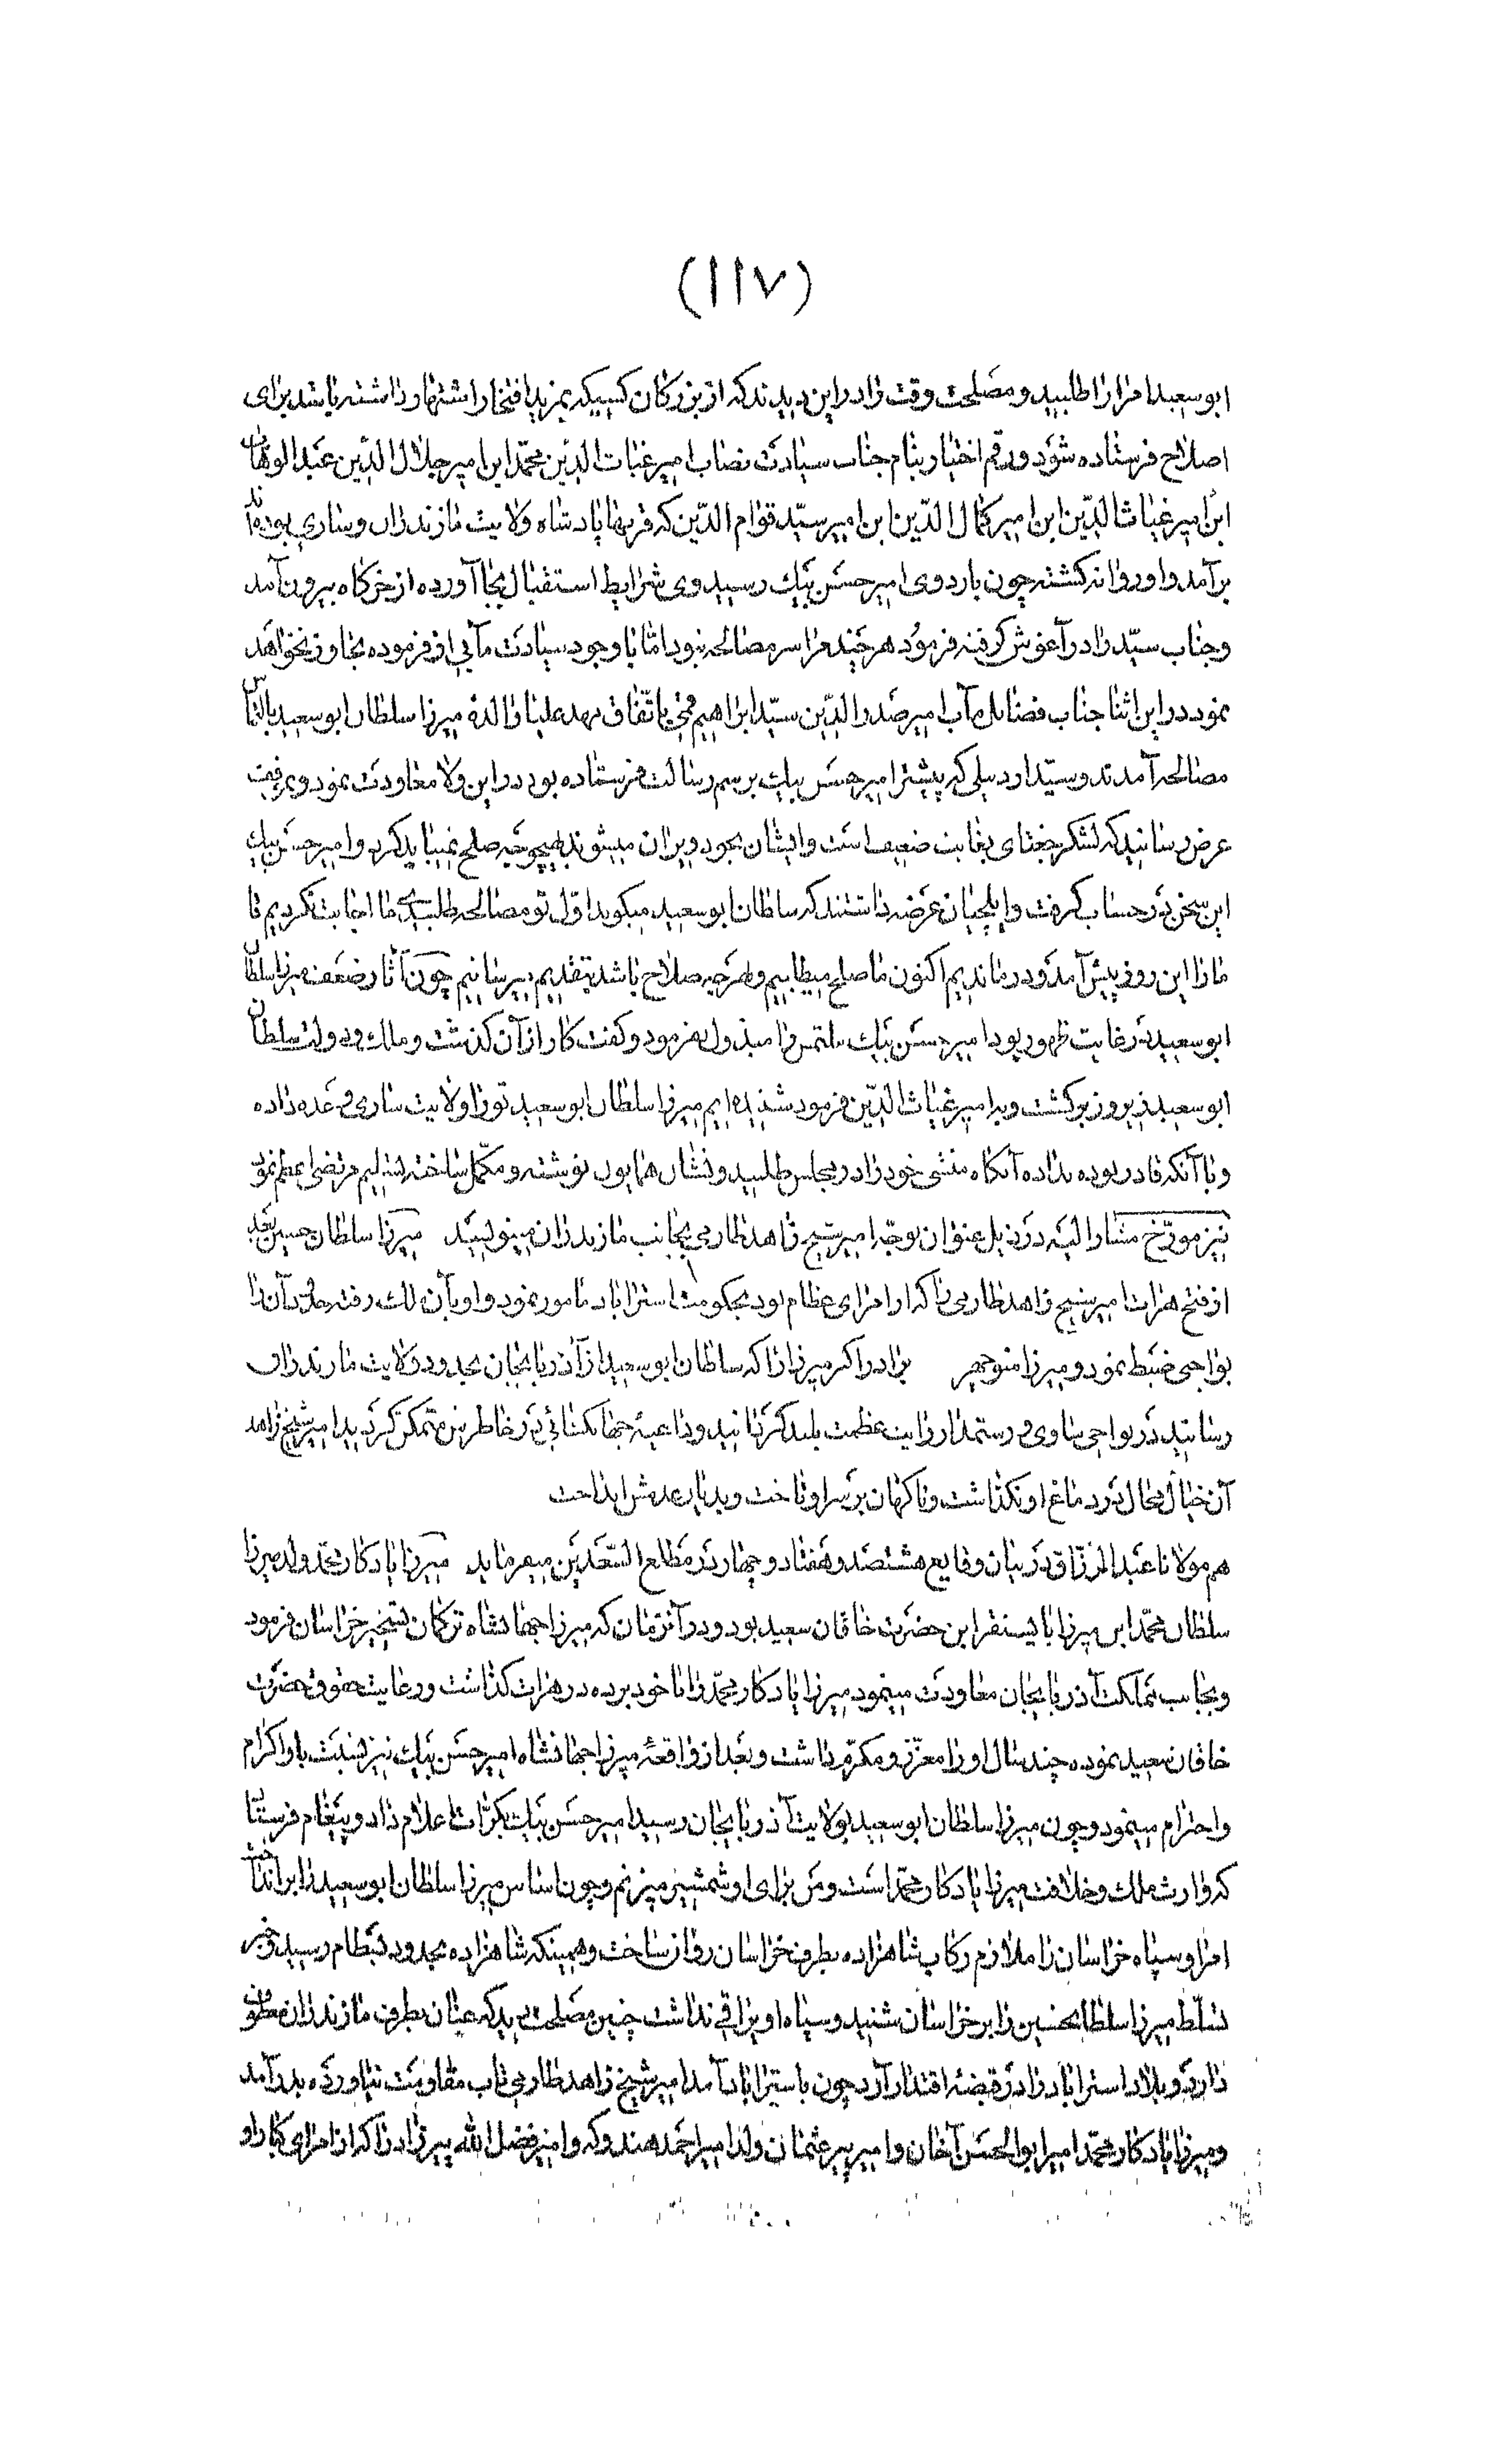 (۱۱۷)
ابو سعید امرا را طلبید و مصلحت وقت را در این دیدند که از بزرگان کسیکه بمزید افتخار اشتهار داشته باشد برای
اصلاح فرستاده شود و رقم اختیار بنام جناب سیادت نصاب امیر غیاث الدین محمد ابن امیر جلال الدین عبد الوهاب
ابن امیر غیاث الدین ابن امیر کمال الدین ابن امیر سید قوام الدین که قرنها پادشاه ولایت مازندران و ساری بوده‌اند
برآمد و او روانه گشته چون باردوی امیر حسن بیک رسید وی شرایط استقبال بجا آورده از خرگاه بیرون آمد
و جناب سید را در آغوش گرفته فرمود هر چند مرا سر مصالحه نبود اما با وجود سیادت مآبی از فرموده تجاوز نخواهد
نمود در این اثنا جناب فضایل مآب امیر صدر الدین سید ابراهیم قمی باتفاق مهد علیا والدهٔ میرزا سلطان ابو سعید بالتماس
مصالحه آمدند و سید اردبیلی که پیشتر امیر حسن بیک برسم رسالت فرستاده بود در این ولا معاودت نمود و
عرض رسانید که لشکر جغتای بغایت ضعیف است و ایشان بخود ویران میشوند بهیچوجه صلح نمیباید کرد و امیر حسن بیک
این سخن در حساب گرفت و ایلچیان عرضه داشتند که سلطان ابو سعید میگوید اول تو مصالحه طلبیدی ما اجابت نکردیم تا
ما را این روز پیش آمد و درماندیم اکنون ما صلح میطلبیم و هرچه صلاح باشد بتقدیم میرسانیم چون آثار ضعف میرزا سلطان
ابو سعید در غایت ظهور بود امیر حسن بیک ملتمس را مبذول نفرمود و گفت کار از آن گذشت و ملک و دولت سلطان
ابو سعید دیروز برگشت و با امیر غیاث الدین فرمود شنیده‌ایم میرزا سلطان ابو سعید تو را ولایت ساری وعده داده
و با آنکه قادر بوده نداده آنگاه منشی خود را در مجلس طلبید و نشان همایون نوشته و مکمل ساخته تسلیم مرتضی اعظم نمود
نیز مورخ مشار الیه در ذیل عنوان توجه امیر شیخ زاهد طارمی بجانب مازندران مینویسد میرزا سلطان حسین بعد
از فتح هرات امیر شیخ زاهد طارمی را که از امرای عظام بود بحکومت استراباد مامور نمود و او بآن ملک رفته حدود آن را
بواجبی ضبط نمود و میرزا منوچهر برادر اکبر میرزا را که سلطان ابو سعید از آذربایجان بحدود ولایت مازندران
رسانید در نواحی ساری و رستمدار رایت عظمت بلند گردانید و داعیهٔ جهانگشائی در خاطرش متمکن گردید امیر شیخ زاهد
آن خیال محال در دماغ او نگذاشت و ناگهان بر سر او تاخت و بدیار عدمش انداخت
هم مولانا عبد الرزاق در بیان وقایع هشتصد و هفتاد و چهار در مطلع السعدین میفرماید میرزا یادگار محمد ولد میرزا
سلطان محمد ابن میرزا بایسنقر ابن حضرت خاقان سعید بود و در آنزمان که میرزا جهانشاه ترکمان تسخیر خراسان فرمود
و بجانب مملکت آذربایجان معاودت مینمود میرزا یادگار محمد را با خود برده در هرات گذاشت و رعایت حقوق حضرت
خاقان سعید نموده چند سال او را معزز و مکرم داشت و بعد از واقعهٔ میرزا جهانشاه امیر حسن بیک نیز نسبت باو اکرام
و احترام مینمود و چون میرزا سلطان ابو سعید بولایت آذربایجان رسید امیر حسن بیک بکرات اعلام داد و پیغام فرستاد
که وارث ملک و خلافت میرزا یادگار محمد است و من برای او شمشیر میزنم و چون اساس میرزا سلطان ابو سعید را برانداخت
امرا و سپاه خراسان را ملازم رکاب شاهزاده بطرف خراسان روان ساخت و همینکه شاهزاده بحدود بسطام رسید و خبر
تسلط میرزا سلطانحسین را بر خراسان شنید و سپاه او یراقی نداشت چنین مصلحت دید که عنان بطرف مازندران معطوف
دارد و بلاد استراباد را در قبضهٔ اقتدار آرد چون باستراباد آمد امیر شیخ زاهد طارمی تاب مقاومت نیاورده بدر آمد
و میرزا یادگار محمد امیر ابو الحسن آخان و امیر پیر عثمان ولد امیر احمد هندوکه و امیر فضل الله پیرزاد را که از امرای کبار او